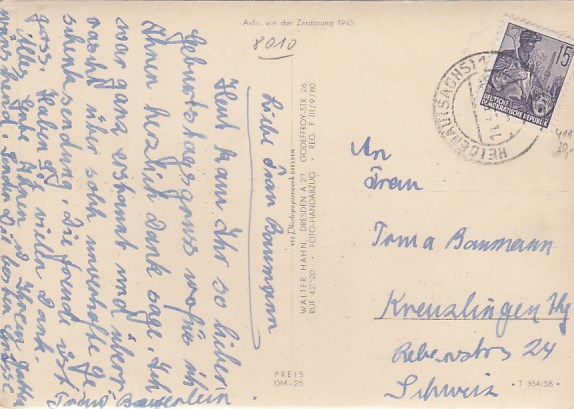 Aufn. vor der Zerstörung 1945
8010
Liebe Frau Baumann
Heut kam Ihr so lieber
Geburtstagsgruss wofür ich
Ihnen herzlich Dank sage. Ich
war ganz erstaunt und überr
rascht über solch unverhoffte Ge
schenksendung. Die Freude ist
gross. Haben Sie vielen Dank.
Alles Gute Ihnen & Ihrem
wünschend, senden die besten Grüsse
Baulein.
VEB Photopapierwerk DRESDEN
WALTER HAHN, DRESDEN A 27 GODEFFROY-STR. 26
RUF 42020 · FOTO-HANDABZUG · REG. F III/9/80
PREIS
DM -25
15
DEUTSCHE
DEMOKRATISCHE REPUBLIK
HEIDENAU (SACHS) 1
An
Frau
Irma Baumann
Kreuzlingen Thg
Rebenstrs 24
Schweiz
· T 354/58 ·